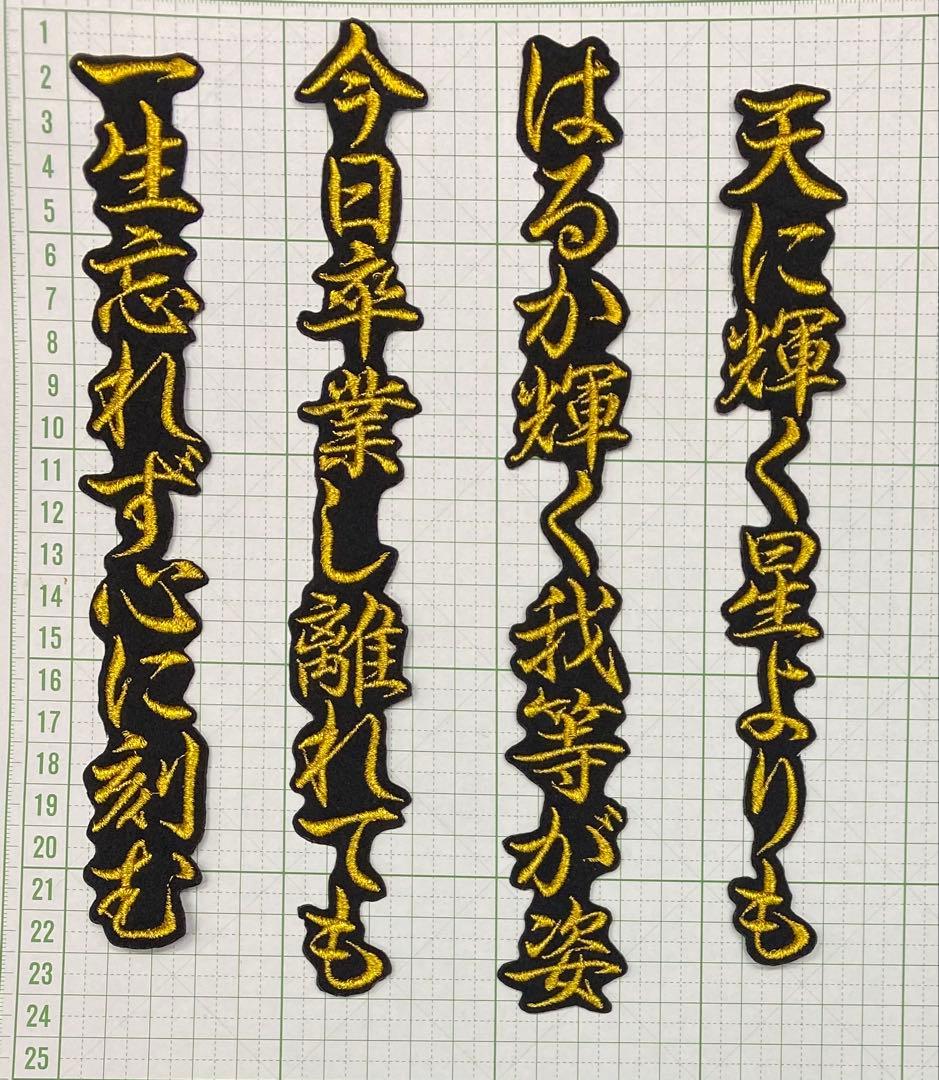 天に輝く星よりも
はるか輝く我等が姿
今日卒業し離れても
一生忘れず心に刻む
1
2
3
4
5
6
7
8
9
10
11
12
13
14
15
16
17
18
19
20
21
22
23
24
25